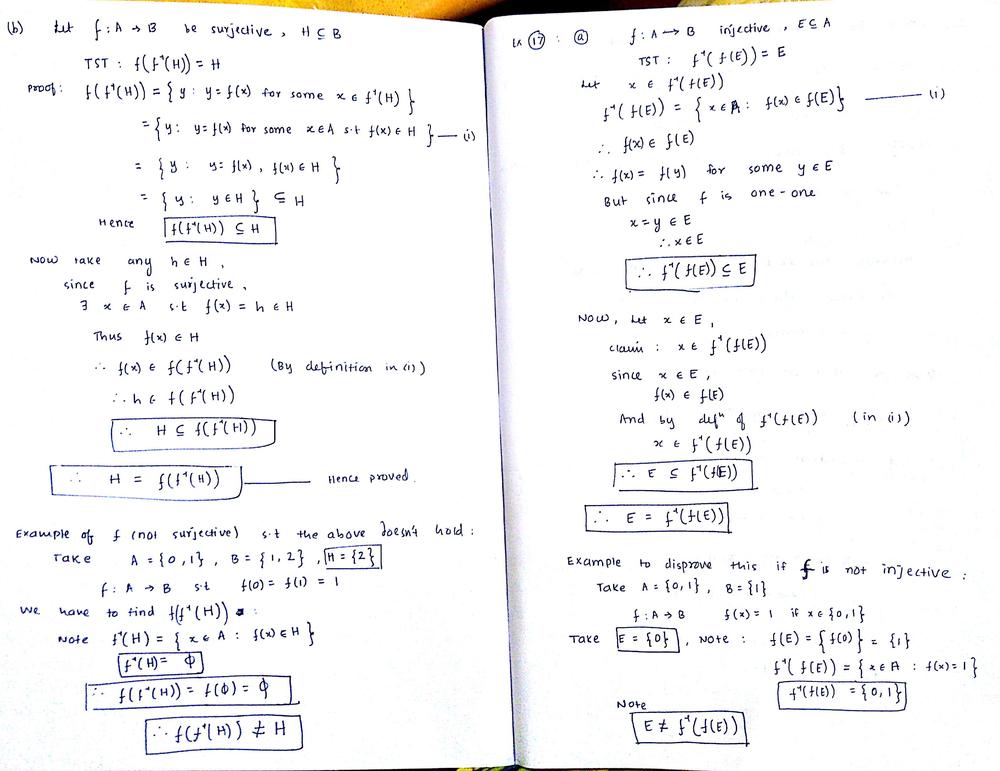 (b) Let f : A → B be surjective, H ⊆ B
TST : f(f⁻¹(H)) = H
Proof: f(f⁻¹(H)) = { y : y = f(x) for some x ∈ f⁻¹(H) }
= { y : y = f(x) for some x ∈ A s.t f(x) ∈ H } — (i)
= { y : y = f(x), f(x) ∈ H }
= { y : y ∈ H } ⊆ H
Hence f(f⁻¹(H)) ⊆ H
Now take any h ∈ H,
since f is surjective,
∃ x ∈ A s.t f(x) = h ∈ H
Thus f(x) ∈ H
∴ f(x) ∈ f(f⁻¹(H)) (By definition in (i))
∴ h ∈ f(f⁻¹(H))
∴ H ⊆ f(f⁻¹(H))
∴ H = f(f⁻¹(H)) — Hence proved.
Example of f (not surjective) s.t the above doesn't hold :
Take A = {0,1}, B = {1,2}, H = {2}
f : A → B s.t f(0) = f(1) = 1
We have to find f(f⁻¹(H)) :
Note f⁻¹(H) = { x ∈ A : f(x) ∈ H }
f⁻¹(H) = ϕ
∴ f(f⁻¹(H)) = f(ϕ) = ϕ
∴ f(f⁻¹(H)) ≠ H
Ex (17) : (a) f : A → B injective, E ⊆ A
TST : f⁻¹(f(E)) = E
Let x ∈ f⁻¹(f(E))
f⁻¹(f(E)) = { x ∈ A : f(x) ∈ f(E) } — (i)
∴ f(x) ∈ f(E)
∴ f(x) = f(y) for some y ∈ E
But since f is one-one
x = y ∈ E
∴ x ∈ E
∴ f⁻¹(f(E)) ⊆ E
Now, Let x ∈ E,
claim : x ∈ f⁻¹(f(E))
since x ∈ E,
f(x) ∈ f(E)
And by defⁿ of f⁻¹(f(E)) (in (i))
x ∈ f⁻¹(f(E))
∴ E ⊆ f⁻¹(f(E))
∴ E = f⁻¹(f(E))
Example to disprove this if f is not injective :
Take A = {0,1}, B = {1}
f : A → B f(x) = 1 if x ∈ {0,1}
Take E = {0}, Note : f(E) = {f(0)} = {1}
f⁻¹(f(E)) = { x ∈ A : f(x) = 1 }
f⁻¹(f(E)) = {0,1}
Note
E ≠ f⁻¹(f(E))